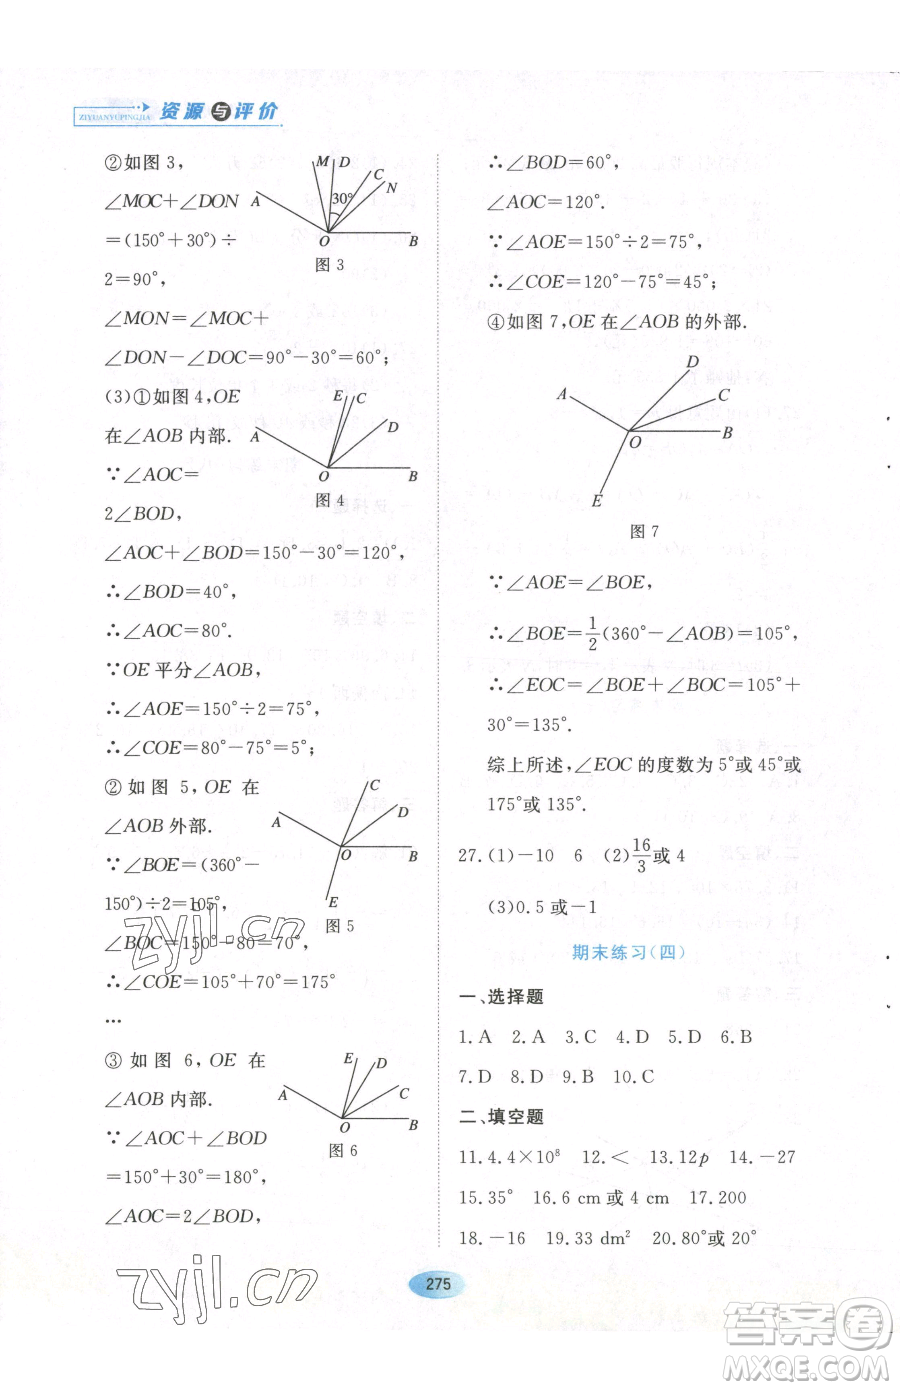 资源与评价
ZIYUANYUPINGJIA
②如图 3,
∠MOC+∠DON
=(150°+30°)÷
2=90°,
∠MON=∠MOC+
∠DON-∠DOC=90°-30°=60°;
M D C N A 30° O B
图 3
(3)①如图 4,OE
在∠AOB 内部.
∵∠AOC=
2∠BOD,
E C D A O B
图 4
∠AOC+∠BOD=150°-30°=120°,
∴∠BOD=40°,
∴∠AOC=80°.
∵OE 平分∠AOB,
∴∠AOE=150°÷2=75°,
∴∠COE=80°-75°=5°;
② 如图 5,OE 在
∠AOB 外部.
∵∠BOE=(360°-
150°)÷2=105°,
C D A O B E
图 5
∠BOC=150°-80=70°,
∴∠COE=105°+70°=175°
…
③ 如图 6,OE 在
∠AOB 内部.
∵∠AOC+∠BOD
=150°+30°=180°,
∠AOC=2∠BOD,
E D C A O B
图 6
∴∠BOD=60°,
∠AOC=120°.
∵∠AOE=150°÷2=75°,
∴∠COE=120°-75°=45°;
④如图 7,OE 在∠AOB 的外部.
D C A O B E
图 7
∵∠AOE=∠BOE,
∴∠BOE=1/2(360°-∠AOB)=105°,
∴∠EOC=∠BOE+∠BOC=105°+
30°=135°.
综上所述,∠EOC 的度数为 5°或 45°或
175°或 135°.
27.(1)-10 6 (2)16/3或 4
(3)0.5 或-1
期末练习(四)
一、选择题
1.A 2.A 3.C 4.D 5.D 6.B
7.D 8.D 9.B 10.C
二、填空题
11.4.4×10⁸ 12.< 13.12p 14.-27
15.35° 16.6 cm或 4 cm 17.200
18.-16 19.33 dm² 20.80°或 20°
275
zyjl.cn
zyjl.cn
答案圈
MXQE.COM